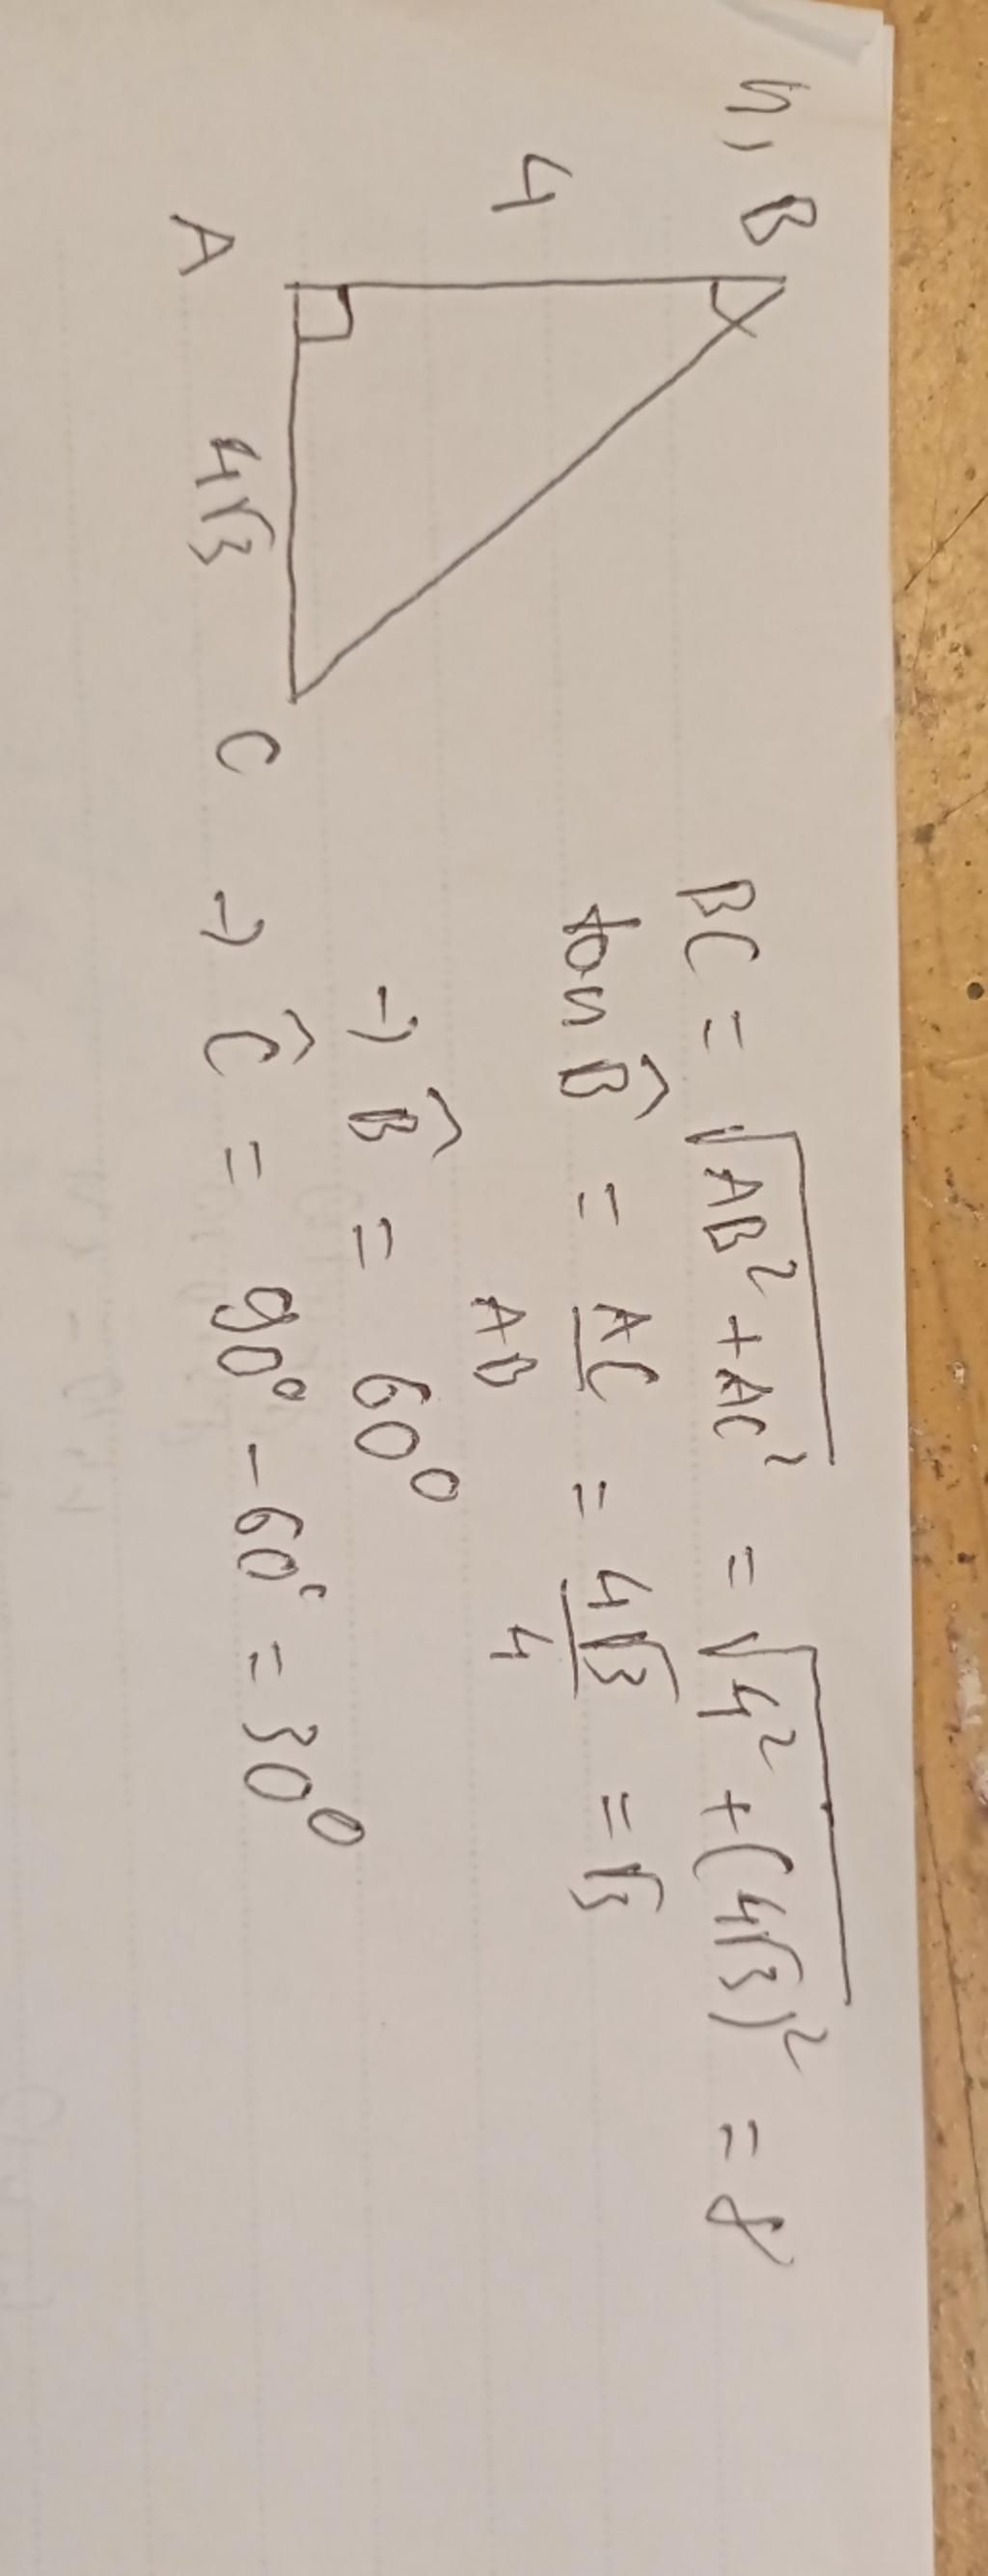 h, B
4
A
4√3
C
BC = √AB² + AC² = √4² + (4√3)² = 8
tan B̂ = AC/AB = 4√3/4 = √3
→ B̂ = 60°
→ Ĉ = 90° - 60° = 30°